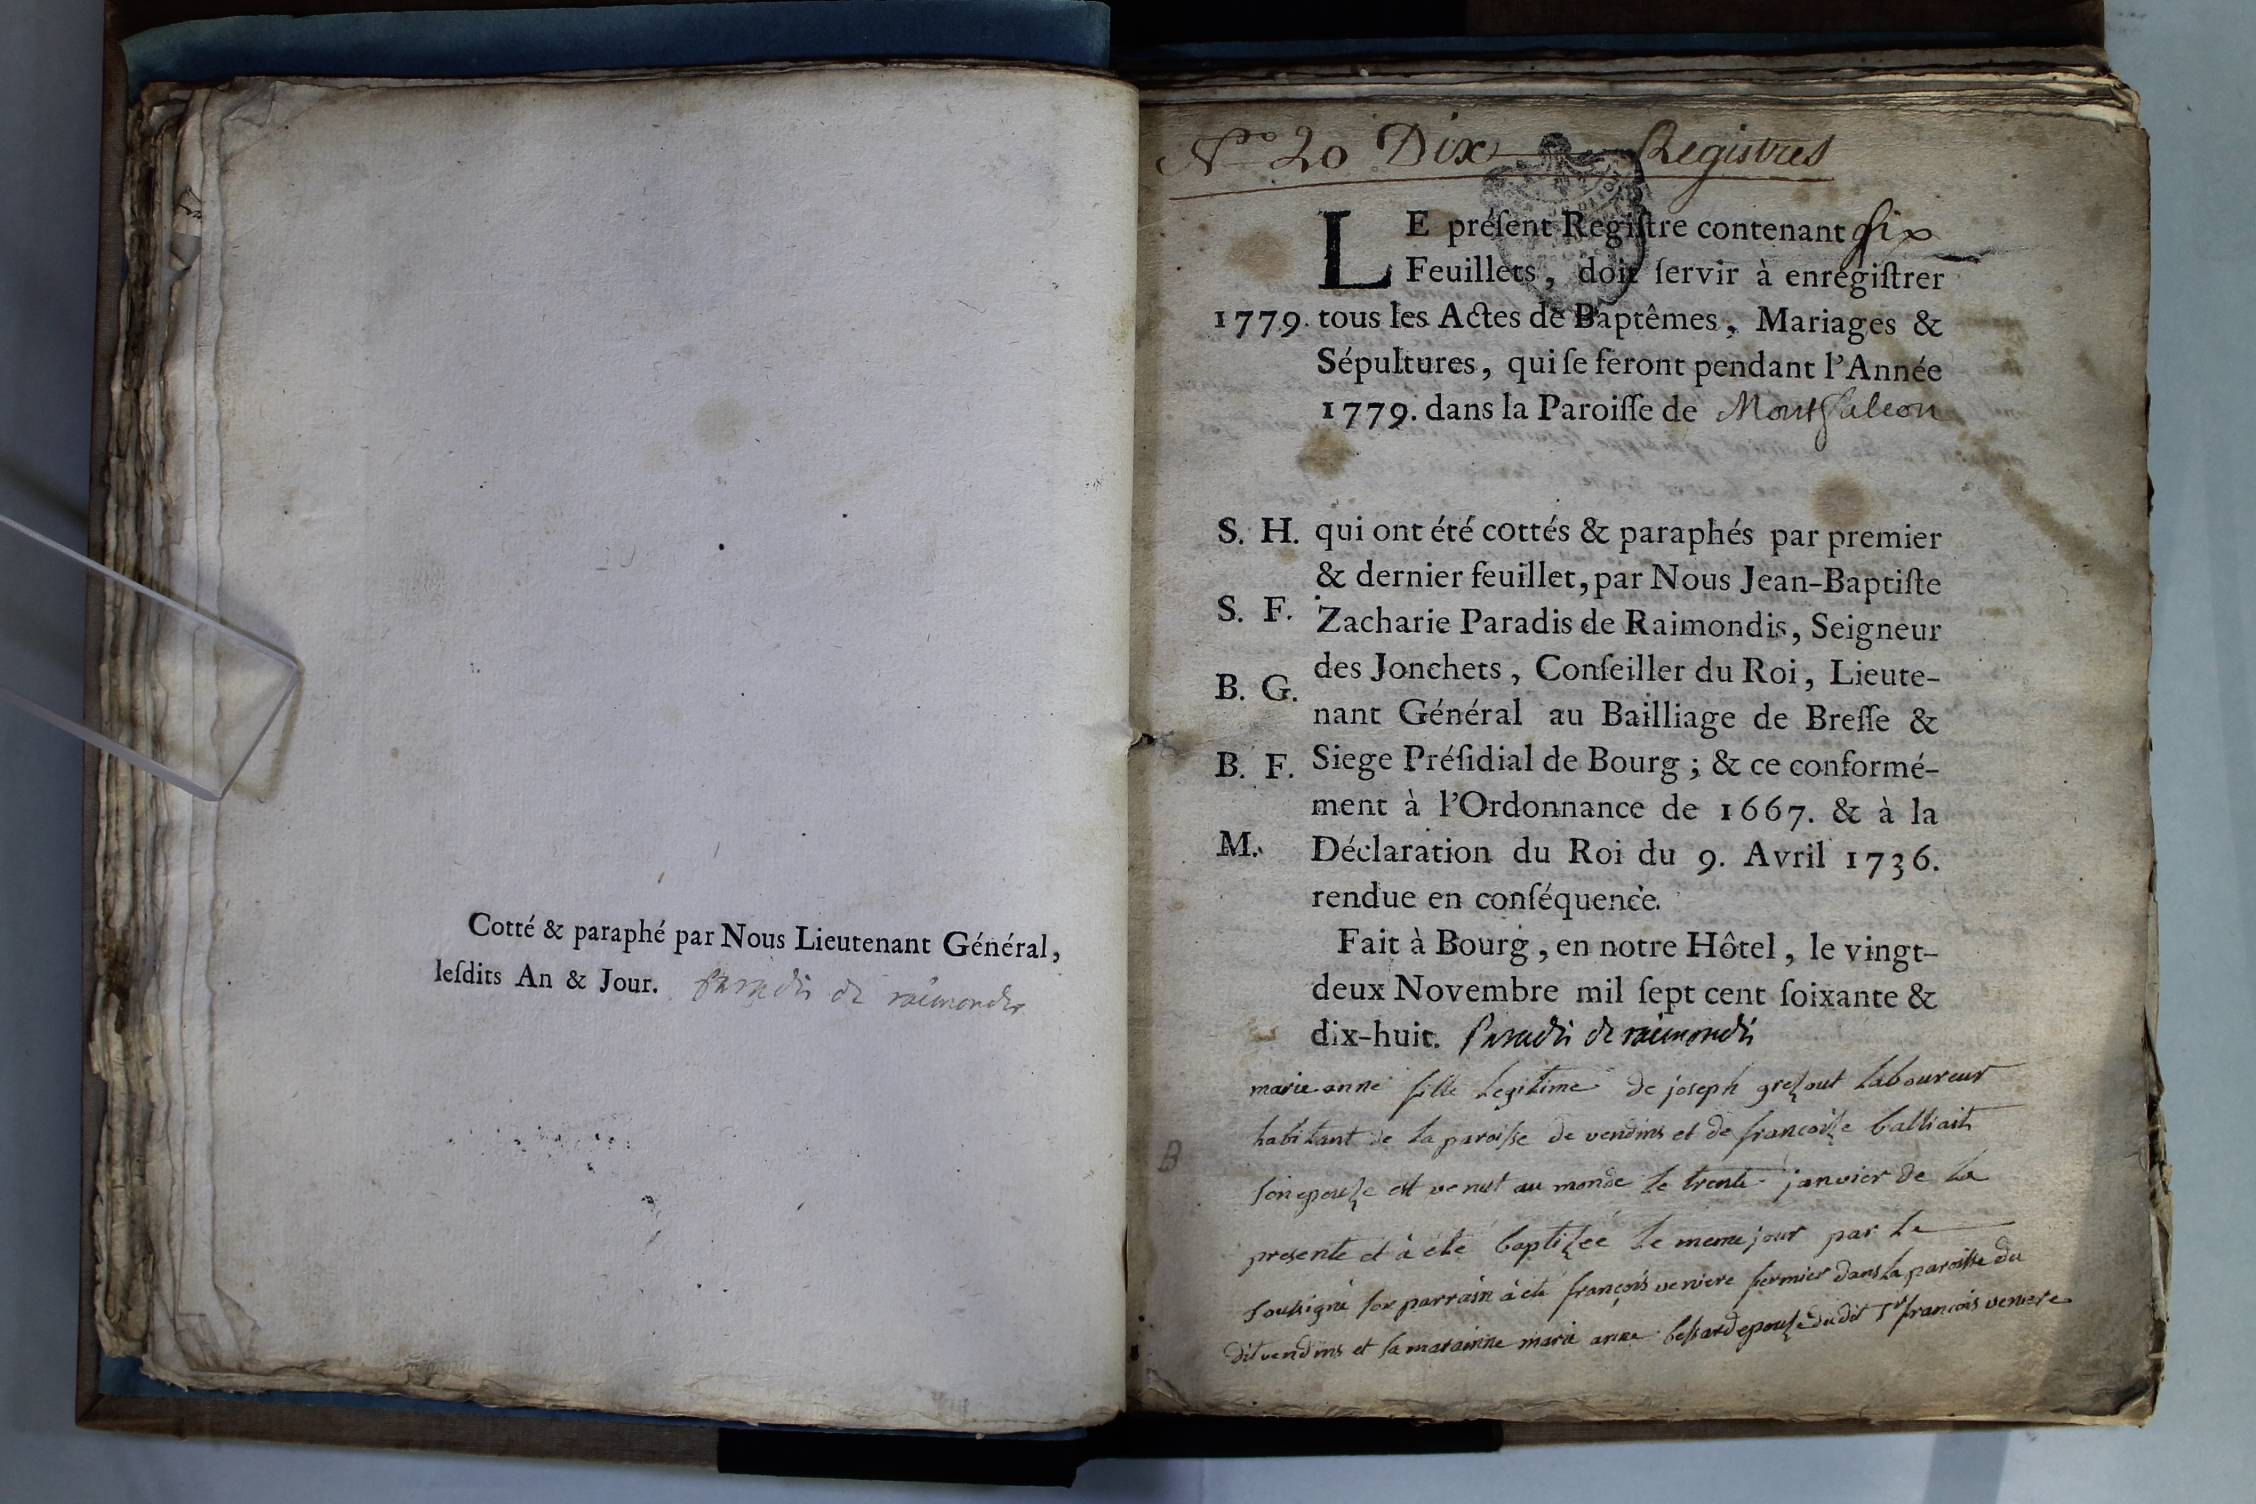 Cotté & paraphé par Nous Lieutenant Général,
leſdits An & Jour. Paradis de raimondis
Nro 20 Dix Registres
LE préſent Regiſtre contenant ſix
Feuillets, doit ſervir à enrégiſtrer
1779. tous les Actes de Baptêmes, Mariages &
Sépultures, qui ſe feront pendant l'Année
1779. dans la Paroiſſe de Montfalcon
S. H. qui ont été cottés & paraphés par premier
& dernier feuillet, par Nous Jean-Baptiſte
S. F. Zacharie Paradis de Raimondis, Seigneur
des Jonchets, Conſeiller du Roi, Lieute-
B. G. nant Général au Bailliage de Breſſe &
B. F. Siege Préſidial de Bourg; & ce conformé-
ment à l'Ordonnance de 1667. & à la
M. Déclaration du Roi du 9. Avril 1736.
rendue en conſéquence.
Fait à Bourg, en notre Hôtel, le vingt-
deux Novembre mil ſept cent ſoixante &
dix-huit. Paradis de raimondis
marie anne fille legitime de joseph grezout laboureur
habitant de la paroisse de vendins et de francoize balliait
B son epouze est venut au monde le trente janvier de la
presente et à eté baptizée le meme jour par le
soussigné son parrain à eté françois veniere fermier dans la paroisse du
dit vendins et la marainne marie anne bessard epouze du dit sr françois veniere